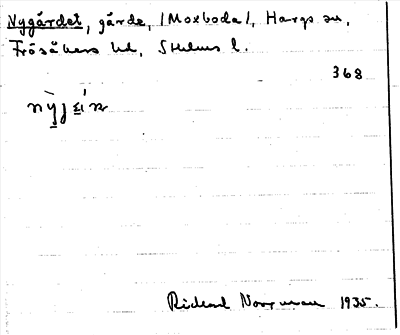 Nygärdet, gärde, /Moxboda/, Hargs sn,
Frösåkers hd, Sthlms l.
368
Rickard Norrman 1935.